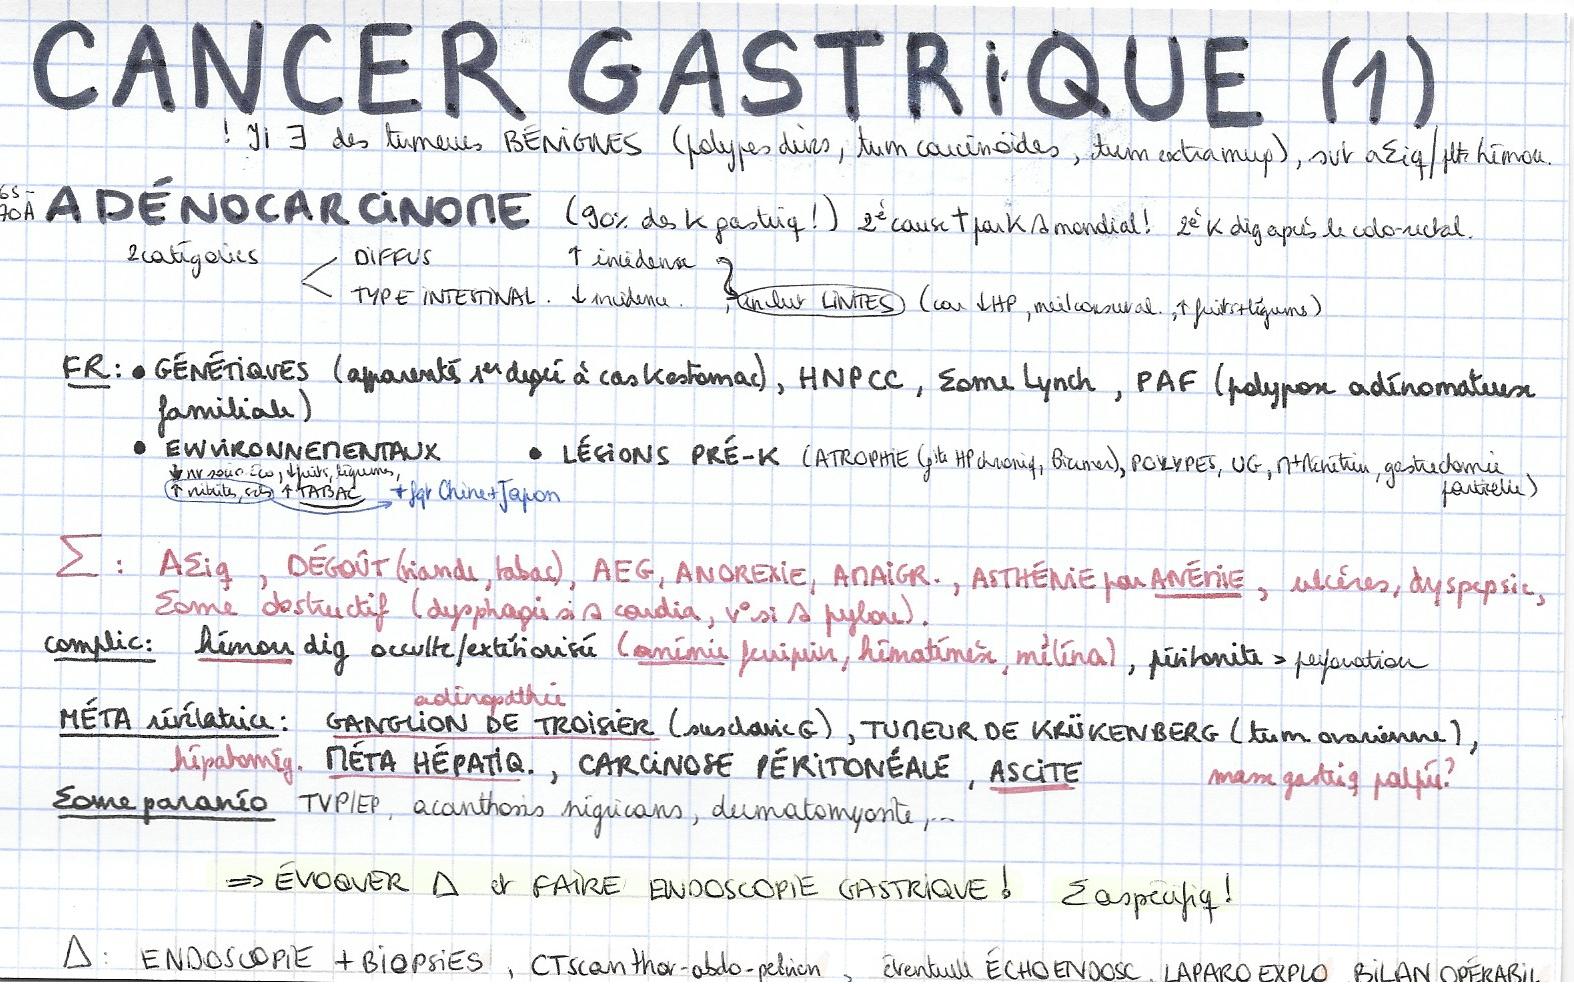 CANCER GASTRIQUE (1)
! Il ∃ des tumeurs BÉNIGNES (polypes divers, tum carcinoïdes, tum extramuq), svt aΣiq/ptt hémorr.
65-70A ADÉNOCARCINOME (90% des K gastriq!) 2è cause † par K Δ mondial! 2è K dig après le colo-rectal.
2 catégories < DIFFUS ↑ incidence
TYPE INTESTINAL. ↓ incidence. inclut LINITES (car ↓HP, meil conserval., ↑ fruits+légumes)
FR: • GÉNÉTIQUES (apparenté 1er degré à cas K estomac), HNPCC, Σome Lynch, PAF (polypose adénomateuse
familiale)
• ENVIRONNEMENTAUX • LÉSIONS PRÉ-K (ATROPHIE (gite HP chroniq, Biermer), POLYPES, UG, Mie Ménétrier, gastrectomie
↓ niv socio-éco, ↓fruits, légumes, partielle)
↑ nitrites, sels ↑ TABAC + fqt Chine+Japon
Σ: AΣiq, DÉGOÛT (viande, tabac), AEG, ANOREXIE, AMAIGR., ASTHÉNIE par ANÉMIE, ulcères, dyspepsie,
Σome obstructif (dysphagie si Δ cardia, V° si Δ pylore).
complic: hémorr dig occulte/extériorisé (anémie ferriprive, hématémèse, méléna), péritonite > perforation
adénopathie
MÉTA révélatrice: GANGLION DE TROISIER (susclavic G), TUMEUR DE KRÜKENBERG (tum ovarienne),
hépatomég. MÉTA HÉPATIQ., CARCINOSE PÉRITONÉALE, ASCITE masse gastriq palpée?
Σome paranéo TVP/EP, acanthosis nigricans, dermatomyosite,...
⇒ ÉVOQUER Δ et FAIRE ENDOSCOPIE GASTRIQUE! Σ aspécifiq!
Δ: ENDOSCOPIE + BIOPSIES, CTscan thor-abdo-pelvien, éventuelle ÉCHOENDOSC, LAPARO EXPLO, BILAN OPÉRABIL